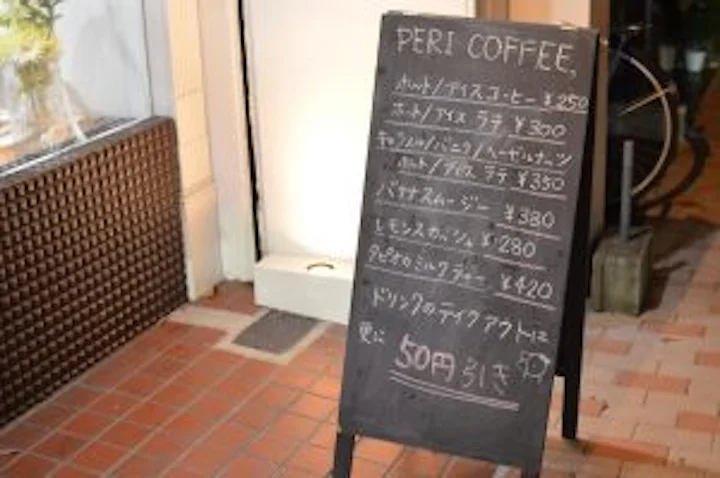 PERI COFFEE,
ホット/アイスコーヒー ¥250
ホット/アイス ラテ ¥300
キャラメル/バニラ/ヘーゼルナッツ
ホット/アイス ラテ ¥350
バナナスムージー ¥380
レモンスカッシュ ¥280
タピオカミルクティー ¥420
ドリンクのテイクアウトは
更に 50円引き